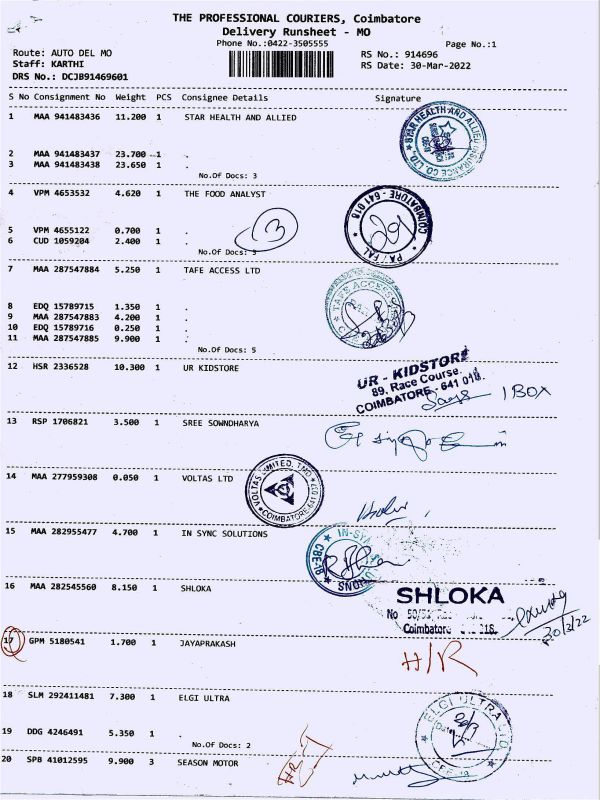 THE PROFESSIONAL COURIERS, Coimbatore
Delivery Runsheet - MO
Phone No.:0422-3505555
Page No.:1
Route: AUTO DEL MO
Staff: KARTHI
DRS No.: DCJB91469601
RS No.: 914696
RS Date: 30-Mar-2022
S No Consignment No Weight PCS Consignee Details Signature
1 MAA 941483436 11.200 1 STAR HEALTH AND ALLIED
STAR HEALTH AND ALLIED INSURANCE CO. LTD.
2 MAA 941483437 23.700 1 .
3 MAA 941483438 23.650 1 .
No.Of Docs: 3
4 VPM 4653532 4.620 1 THE FOOD ANALYST
COIMBATORE - 641 018
3
5 VPM 4655122 0.700 1 .
6 CUD 1059204 2.400 1 .
No.Of Docs: 3
7 MAA 287547884 5.250 1 TAFE ACCESS LTD
TAFE ACCESS
8 EDQ 15789715 1.350 1 .
9 MAA 287547883 4.200 1 .
10 EDQ 15789716 0.250 1 .
11 MAA 287547885 9.900 1 .
No.Of Docs: 5
12 HSR 2336528 10.300 1 UR KIDSTORE
UR - KIDSTORE
89, Race Course,
COIMBATORE - 641 018.
1 BOX
13 RSP 1706821 3.500 1 SREE SOWNDHARYA
14 MAA 277959308 0.050 1 VOLTAS LTD
VOLTAS LIMITED,
COIMBATORE-641 018
15 MAA 282955477 4.700 1 IN SYNC SOLUTIONS
CBE-18
16 MAA 282545560 8.150 1 SHLOKA
SHLOKA
No
Coimbatore 018.
30/3/22
17 GPM 5180541 1.700 1 JAYAPRAKASH
H/R
18 SLM 292411481 7.300 1 ELGI ULTRA
ELGI ULTRA LTD
19 DDG 4246491 5.350 1 .
No.Of Docs: 2
20 SPB 41012595 9.900 3 SEASON MOTOR